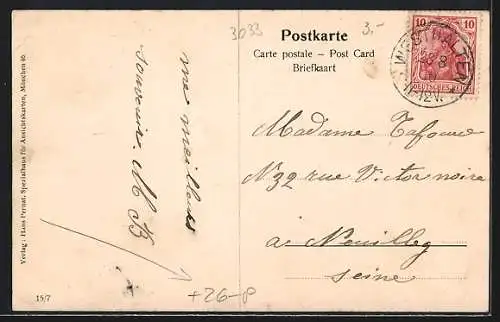 3033
3.-
Postkarte
Carte postale – Post Card
Briefkaart
10 10
DEUTSCHES REICH
WESTHALTEN
11-12V.
mes meilleurs
souvenirs. M B
Madame
N 32 rue Victor noire
a Neuilley
Seine
+26-8
Verlag: Hans Pernat, Spezialhaus für Ansichtskarten, München 40
15/7